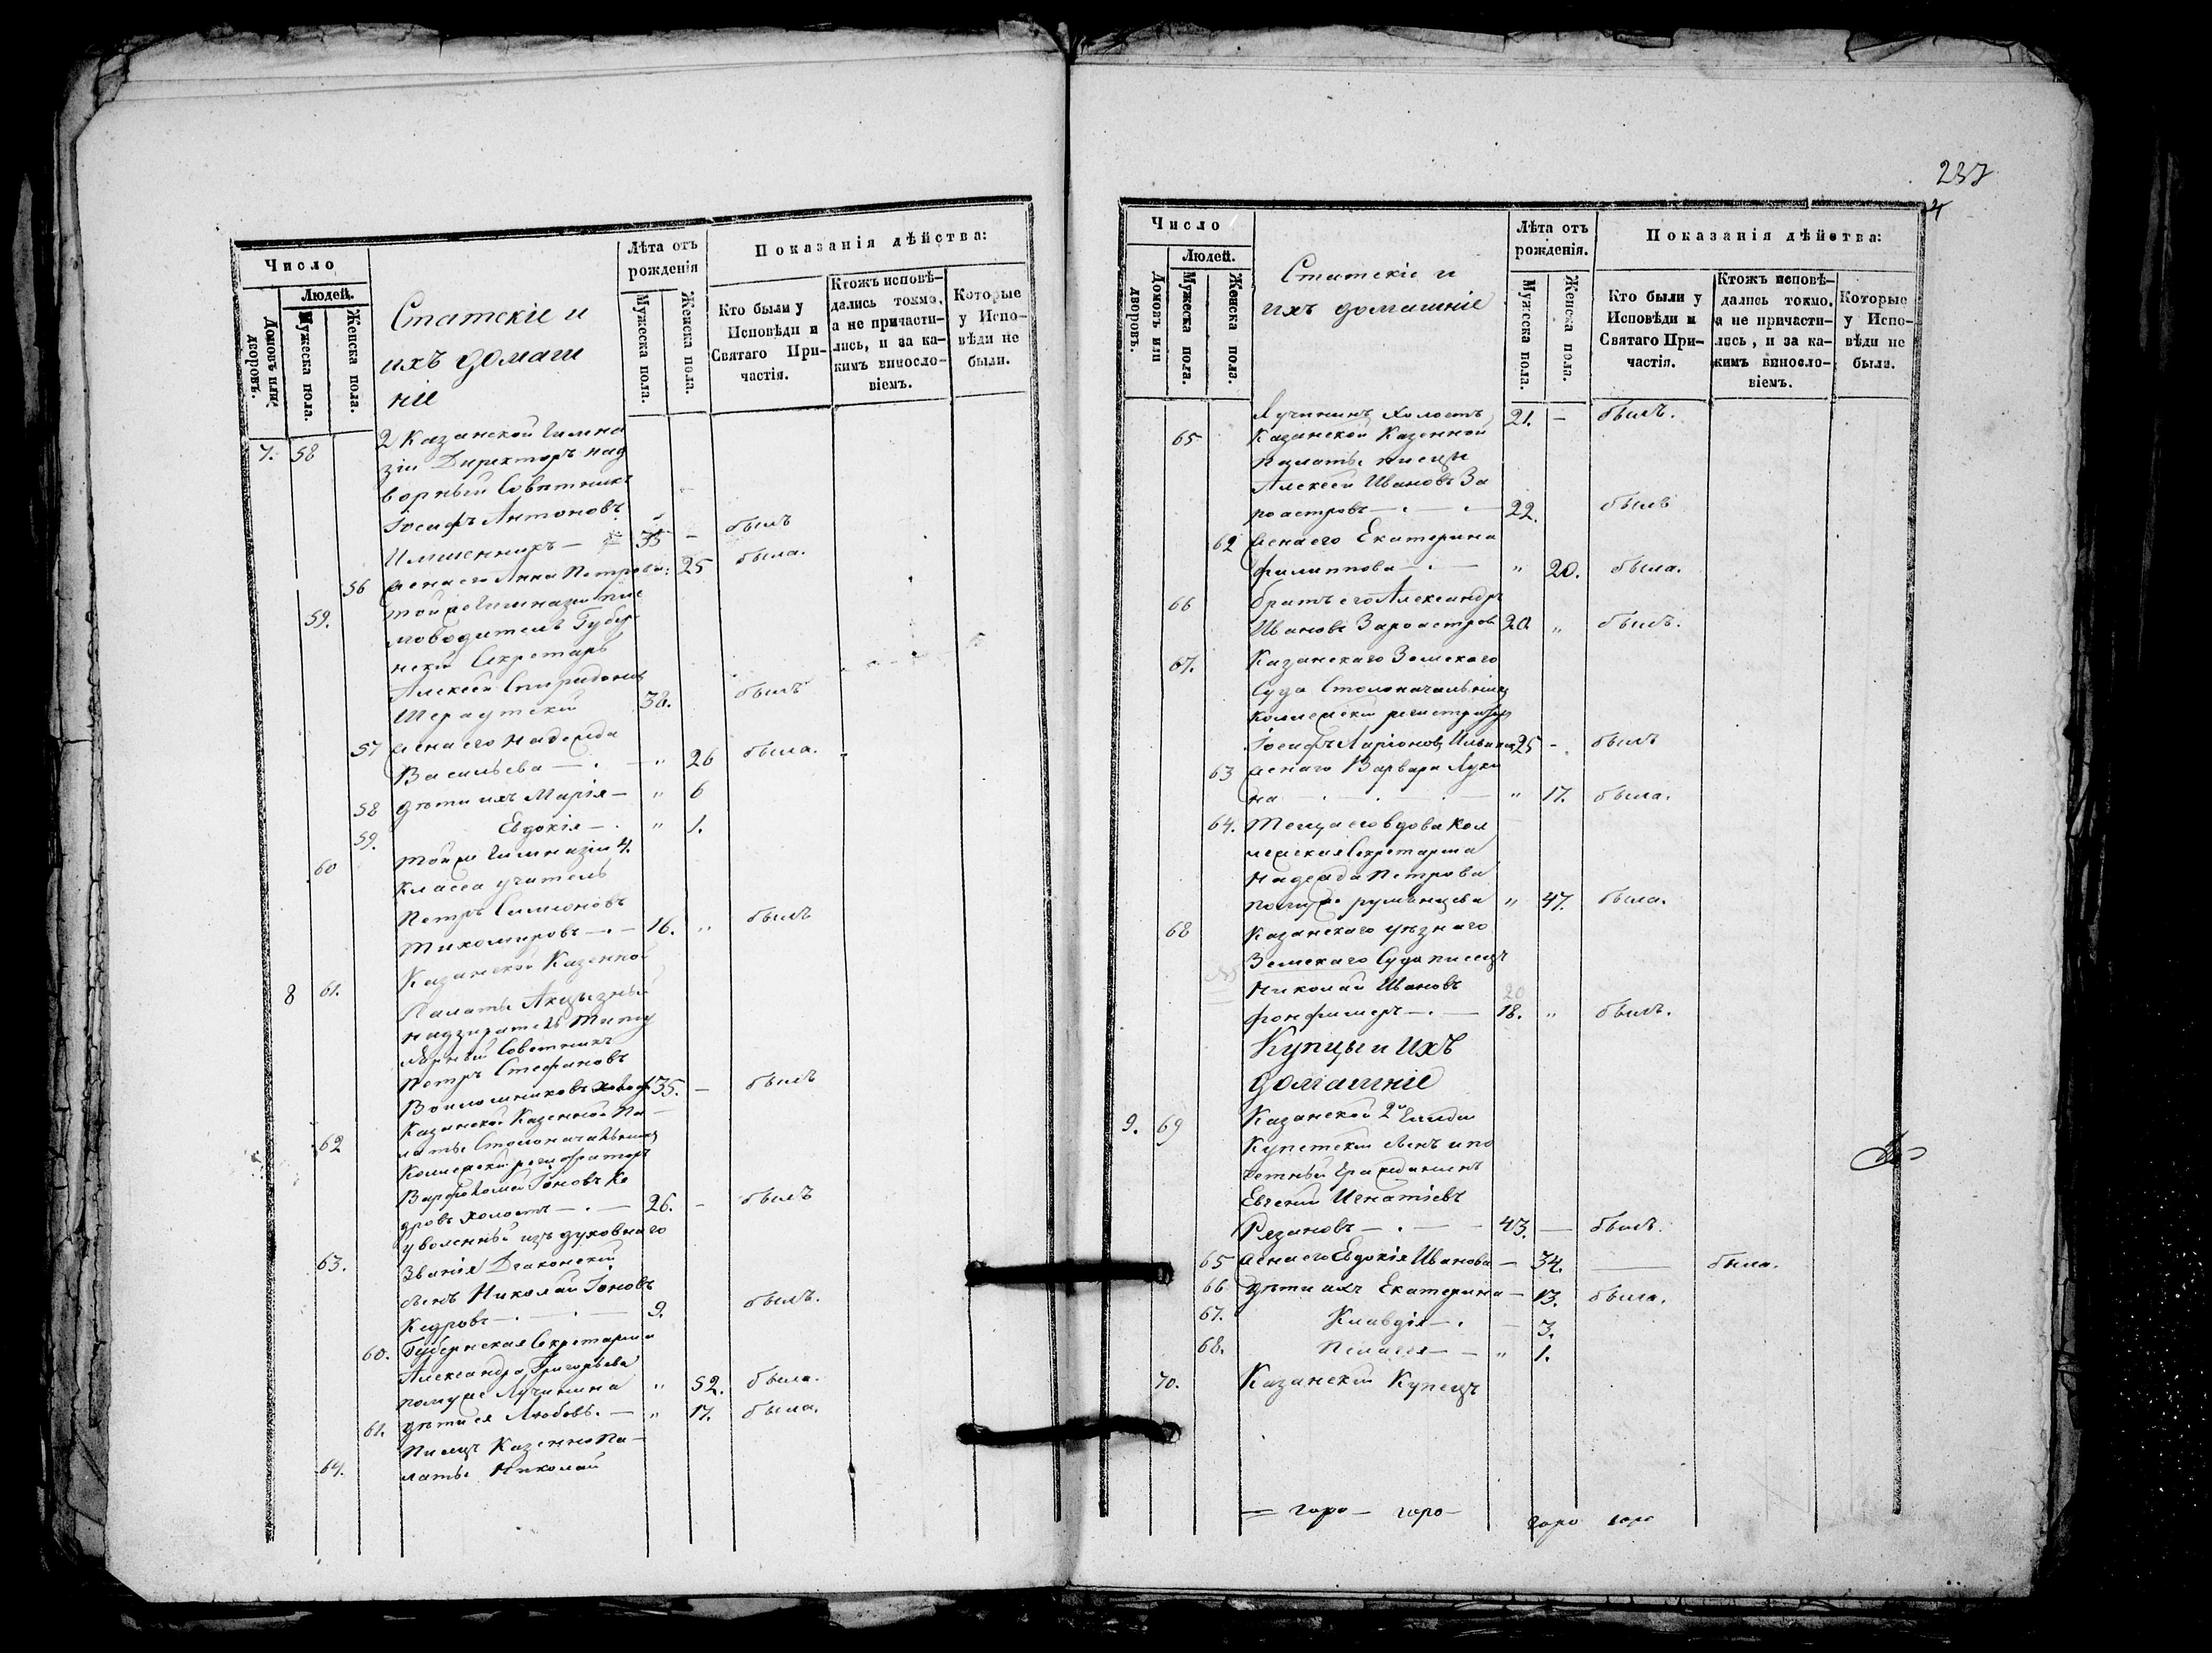 Число
Людей.
Домовъ или дворовъ.
Мужеска пола.
Женска пола.
Статскіе и
ихъ домаш
ніе
Лѣта отъ
рожденія
Мужеска пола.
Женска пола.
Показанія дѣйства:
Кто были у
Исповѣди и
Святаго При-
частія.
Ктожъ исповѣ-
дались токмо,
а не причасти-
лись, и за ка-
кимъ виносло-
віемъ.
Которые
у Испо-
вѣди не
были.
7. 58 2 Казанской Гимна
зіи Директоръ над
ворный Совѣтникъ
Іосифъ Антоновъ
35 - былъ
56 жена его Анна Петрова 25 была.
59. тойже Гимназіи пис
моводитель Губер
нскій Секретарь
Алексей Спиридоновъ
38. былъ
57 жена его Надежда
Васильева — . — " 26 была.
58 дѣти ихъ Марія — " 6
59. Евдокія — . " 1.
60 тойже Гимназіи 4.
класса учитель
Петръ Симеоновъ
Тихомировъ — . — 16. " былъ
8 61. Казанской Казенной
Палаты Акцызный
надзиратель Титу
лярный Советникъ
Петръ Стефановъ
35. - былъ
62 Казанской Казенной Па
латы Столоначальникъ
Коллежскій регистраторъ
Варфоломей Іоновъ Ке
дровъ холостъ — . — 26. - былъ
63. уволенный изъ духовнаго
званія Дьяконскій
сынъ Николай Іоновъ
Кедровъ — . — 9. былъ.
60. Губернская Секретарша
Александра Григорьева
помуже Лучинина " 52. была.
61. дѣти ея Любовь. — " 17. была.
64. Писецъ Казенно Па-
латы Николай
237
Число
Людей.
Домовъ или дворовъ.
Мужеска пола.
Женска пола.
Статскіе и
ихъ домашніе
Лѣта отъ
рожденія.
Мужеска пола.
Женска пола.
Показанія дѣйства:
Кто были у
Исповѣди и
Святаго При-
частія.
Ктожъ исповѣ-
дались токмо,
а не причасти-
лись, и за ка-
кимъ виносло-
віемъ.
Которые
у Испо-
вѣди не
были.
Лучининъ холостъ 21. - былъ.
65 Казанской Казенной
палаты писецъ
Алексей Ивановъ За
роастровъ — . — 22. былъ
62 жена его Екатерина
филиппова — . — " 20. была.
66 братъ его Александръ
Ивановъ Зароастровъ 20 " былъ.
67. Казанскаго Земскаго
Суда Столоначальникъ
Коллежскій регистраторъ
Іосифъ Ларіоновъ 25 - . былъ
63 жена его Варвара Луки
на — . — . — " 17. была.
64. Теща его вдова Кол
лежская Секретарша
Надежда Петрова
помуже румянцева " 47. была.
68 Казанскаго уѣзнаго
Земскаго Суда писецъ
Николай Ивановъ 20
18. " былъ.
Купцы и ихъ
домашніе
9. 69 Казанской 2й Гилди
Купетскій сынъ и по
четный гражданинъ
Евгеній Игнатіевъ
Рязановъ — . — 43. — былъ.
65 жена его Евдокія Иванова — 34. — была.
66 дѣти ихъ Екатерина — 13. была.
67. Клавдія — . — 3.
68. Пелагея — — " 1.
70. Казанскій Купецъ